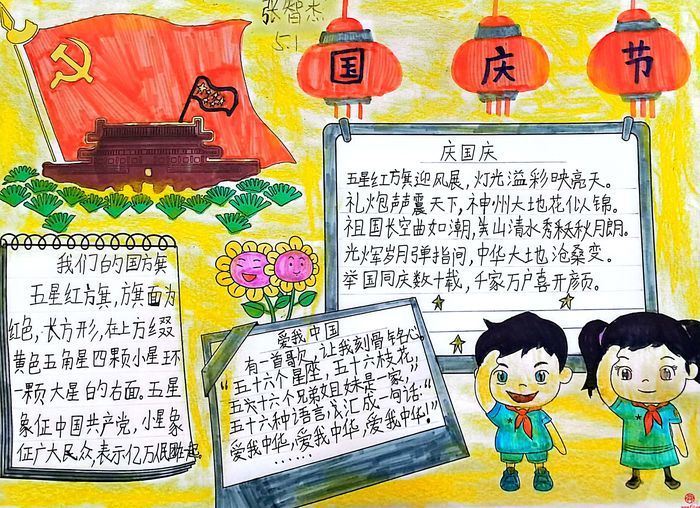 张智杰
5.1
国 庆 节
庆国庆
五星红旗迎风展,灯光溢彩映亮天。
礼炮声声震天下,神州大地花似锦。
祖国长空曲如潮,山清水秀秋月朗。
光辉岁月弹指间,中华大地沧桑变。
举国同庆数十载,千家万户喜开颜。
我们的国旗
五星红旗,旗面为
红色,长方形,在上方缀
黄色五角星四颗小星环
一颗大星的右面。五星
象征中国共产党,小星象
征广大民众,表示亿万民
爱我中国
有一首歌,让我刻骨铭心。
“五十六个星座,五十六枝花,
五十六个兄弟姐妹是一家,”
五十六种语言,汇成一句话:“
爱我中华,爱我中华,爱我中华!”
……